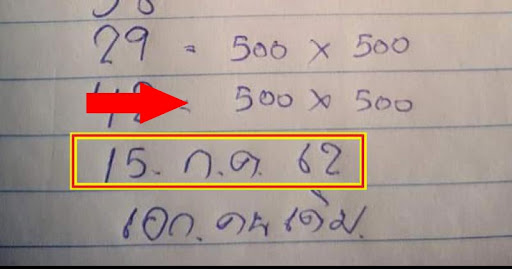 29 = 500 x 500
500 x 500
15. ก.ค. 62
เอก. คนเดิม.